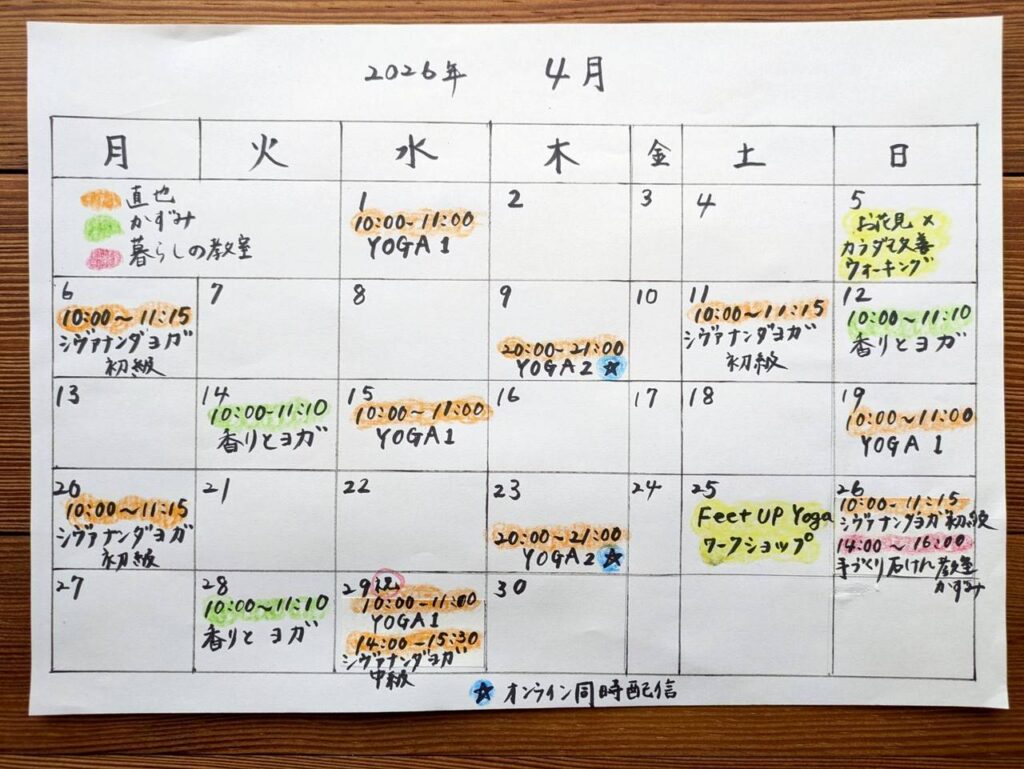 2026年 4月
月 火 水 木 金 土 日
直也
かずみ
暮らしの教室
1
10:00-11:00
YOGA1
2
3
4
5
お花見×
カラダ改善
ウォーキング
6
10:00~11:15
シヴァナンダヨガ
初級
7
8
9
20:00~21:00
YOGA2 ☆
10
11
10:00~11:15
シヴァナンダヨガ
初級
12
10:00~11:10
香りとヨガ
13
14
10:00-11:10
香りとヨガ
15
10:00~11:00
YOGA1
16
17
18
19
10:00~11:00
YOGA1
20
10:00~11:15
シヴァナンダヨガ
初級
21
22
23
20:00~21:00
YOGA2 ☆
24
25
Feet UP Yoga
ワークショップ
26
10:00-11:15
シヴァナンダヨガ初級
14:00~16:00
手づくり石けん教室
かずみ
27
28
10:00~11:10
香りとヨガ
29 祝
10:00-11:00
YOGA1
14:00-15:30
シヴァナンダヨガ
中級
30
☆ オンライン同時配信